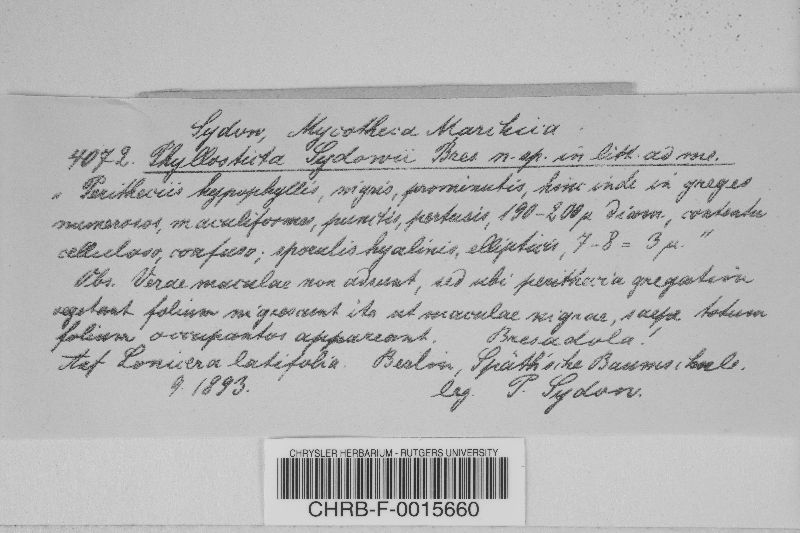 Sydow, Mycotheca Marchica
4072. Phyllosticta Sydowii Bres. n. sp. in litt. ad me.
„ Peritheciis hypophyllis, nigris, prominulis, hinc inde in greges
numerosos, maculiformes, junctis, pertusis, 190-200 µ diam., contextu
celluloso, confuso; sporulis hyalinis, ellipticis, 7-8 = 3 µ. "
Obs. Verae maculae non adsunt, sed ubi perithecia gregatim
vegetant folium nigrescunt ita ut maculae nigrae, saepe totum
folium occupantes appareant. Bresadola!
Auf Lonicera latifolia. Berlin, Späth'sche Baumschule.
9. 1893. leg. P. Sydow.
CHRYSLER HERBARIUM - RUTGERS UNIVERSITY
CHRB-F-0015660